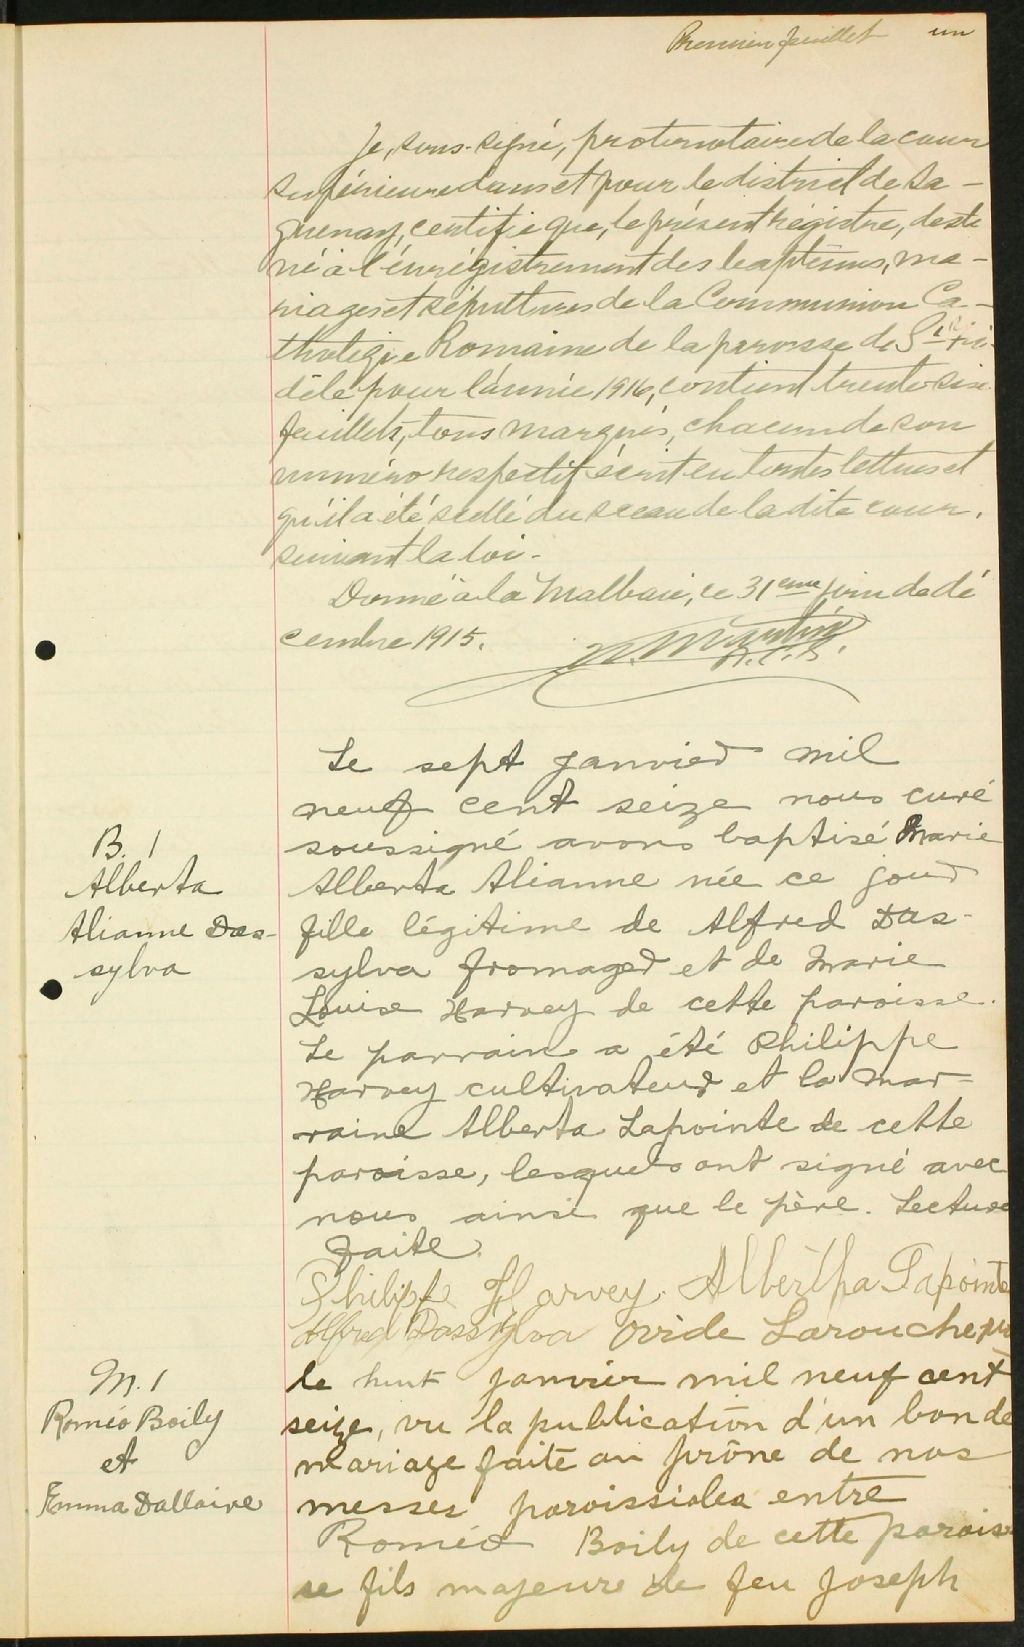 Premier feuillet un
Je, sous-signé, protonotaire de la cour
supérieure dans et pour le district de Sa-
guenay, certifie que, le présent régistre, desti
né à l'enrégistrement des baptêmes, ma-
riages et sépultures de la Communion Ca-
tholiqie Romaine de la paroisse de St Fi-
dèle pour l'année 1916, contient trente-six
feuillets, tous marqués, chacun de son
numéro respectif écrit en toutes lettres et
qu'il a été scellé du sceau de la dite cour,
suivant la loi.
Donné à la Malbaie, ce 31eme jour de dé
cembre 1915.
P.C.S.
Le sept janvier mil
neuf cent seize nous curé
soussigné avons baptisé Marie
Alberta Alianne née ce jour
fille légitime de Alfred Das-
sylva fromager et de Marie
Louise Harvey de cette paroisse.
Le parrain a été Philippe
Harvey cultivateur et la mar-
raine Alberta Lapointe de cette
paroisse, lesquels ont signé avec
nous ainsi que le père. Lecture
faite.
Philippe Harvey Albertha Lapointe
Alfred Dassylva Ovide Larouche ptr
B. 1
Alberta
Alianne Das-
sylva
le huit janvier mil neuf cent
seize, vu la publication d'un ban de
mariage faite au prône de nos
messes paroissiales entre
Roméo Boily de cette parois
se fils majeure de feu Joseph
M. 1
Roméo Boily
et
Emma Dallaire